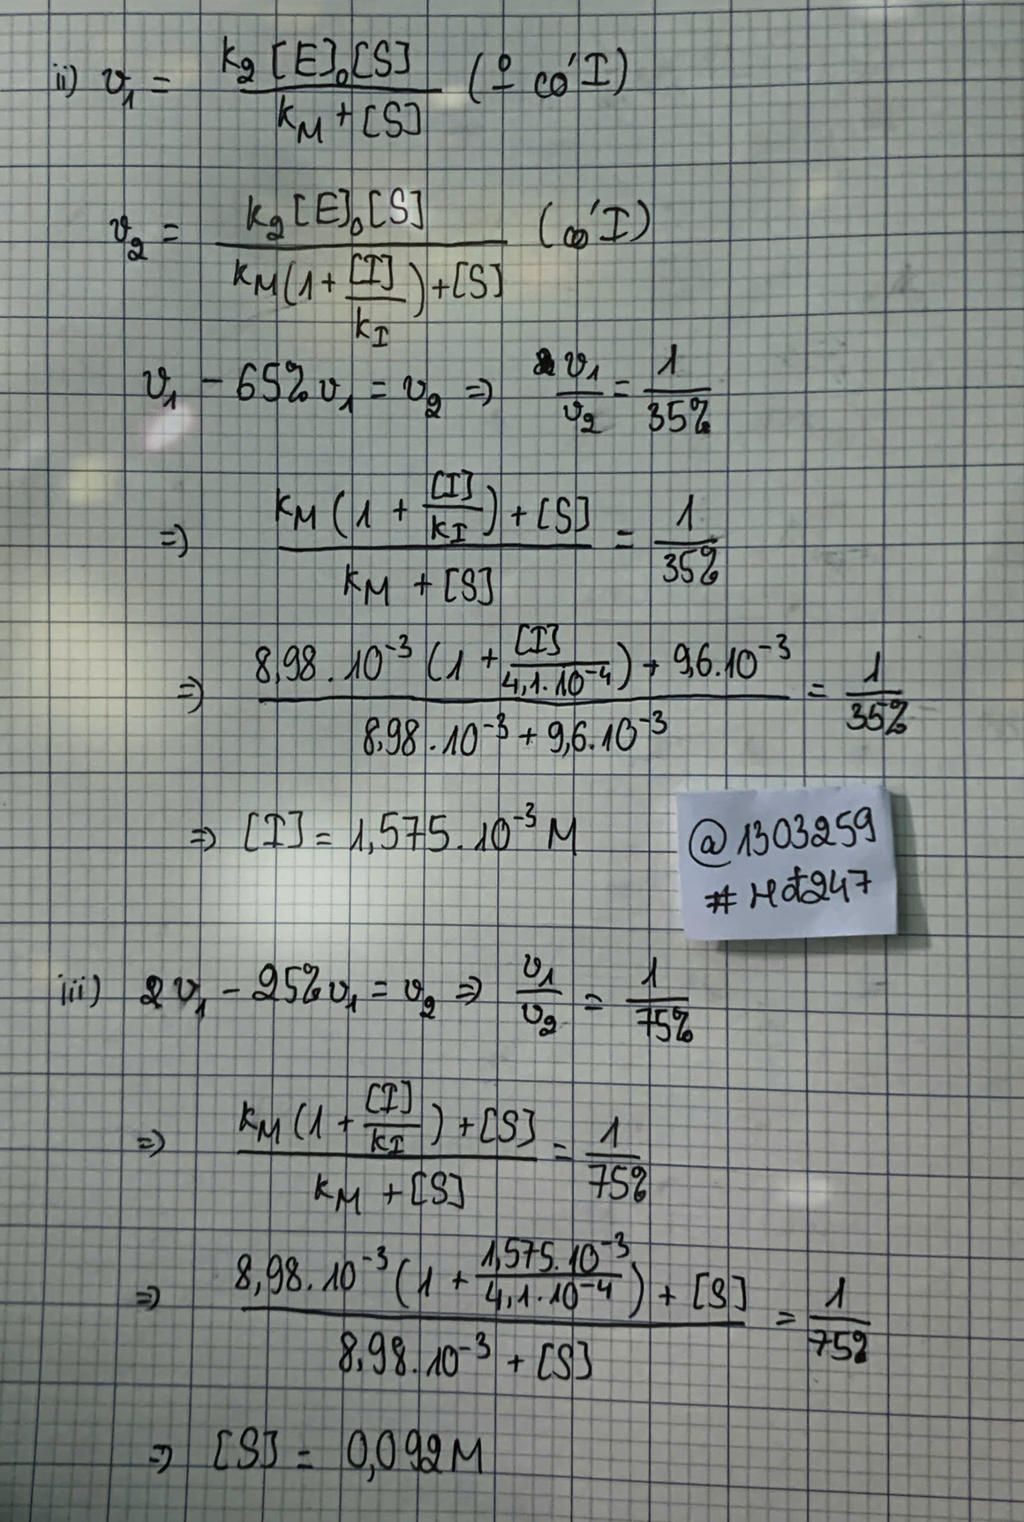 ii) v₁ = k₂[E]₀[S] / (k_M + [S]) (o có I)
v₂ = k₂[E]₀[S] / (k_M(1 + [I]/k_I) + [S]) (có I)
v₁ - 65% v₁ = v₂ => v₁/v₂ = 1/35%
=> (k_M(1 + [I]/k_I) + [S]) / (k_M + [S]) = 1/35%
=> (8,98.10⁻³(1 + [I]/4,1.10⁻⁴) + 9,6.10⁻³) / (8,98.10⁻³ + 9,6.10⁻³) = 1/35%
=> [I] = 1,575.10⁻³ M
@1303259
# Hđ247
iii) v₁ - 25% v₁ = v₂ => v₁/v₂ = 1/75%
=> (k_M(1 + [I]/k_I) + [S]) / (k_M + [S]) = 1/75%
=> (8,98.10⁻³(1 + 1,575.10⁻³/4,1.10⁻⁴) + [S]) / (8,98.10⁻³ + [S]) = 1/75%
=> [S] = 0,092M